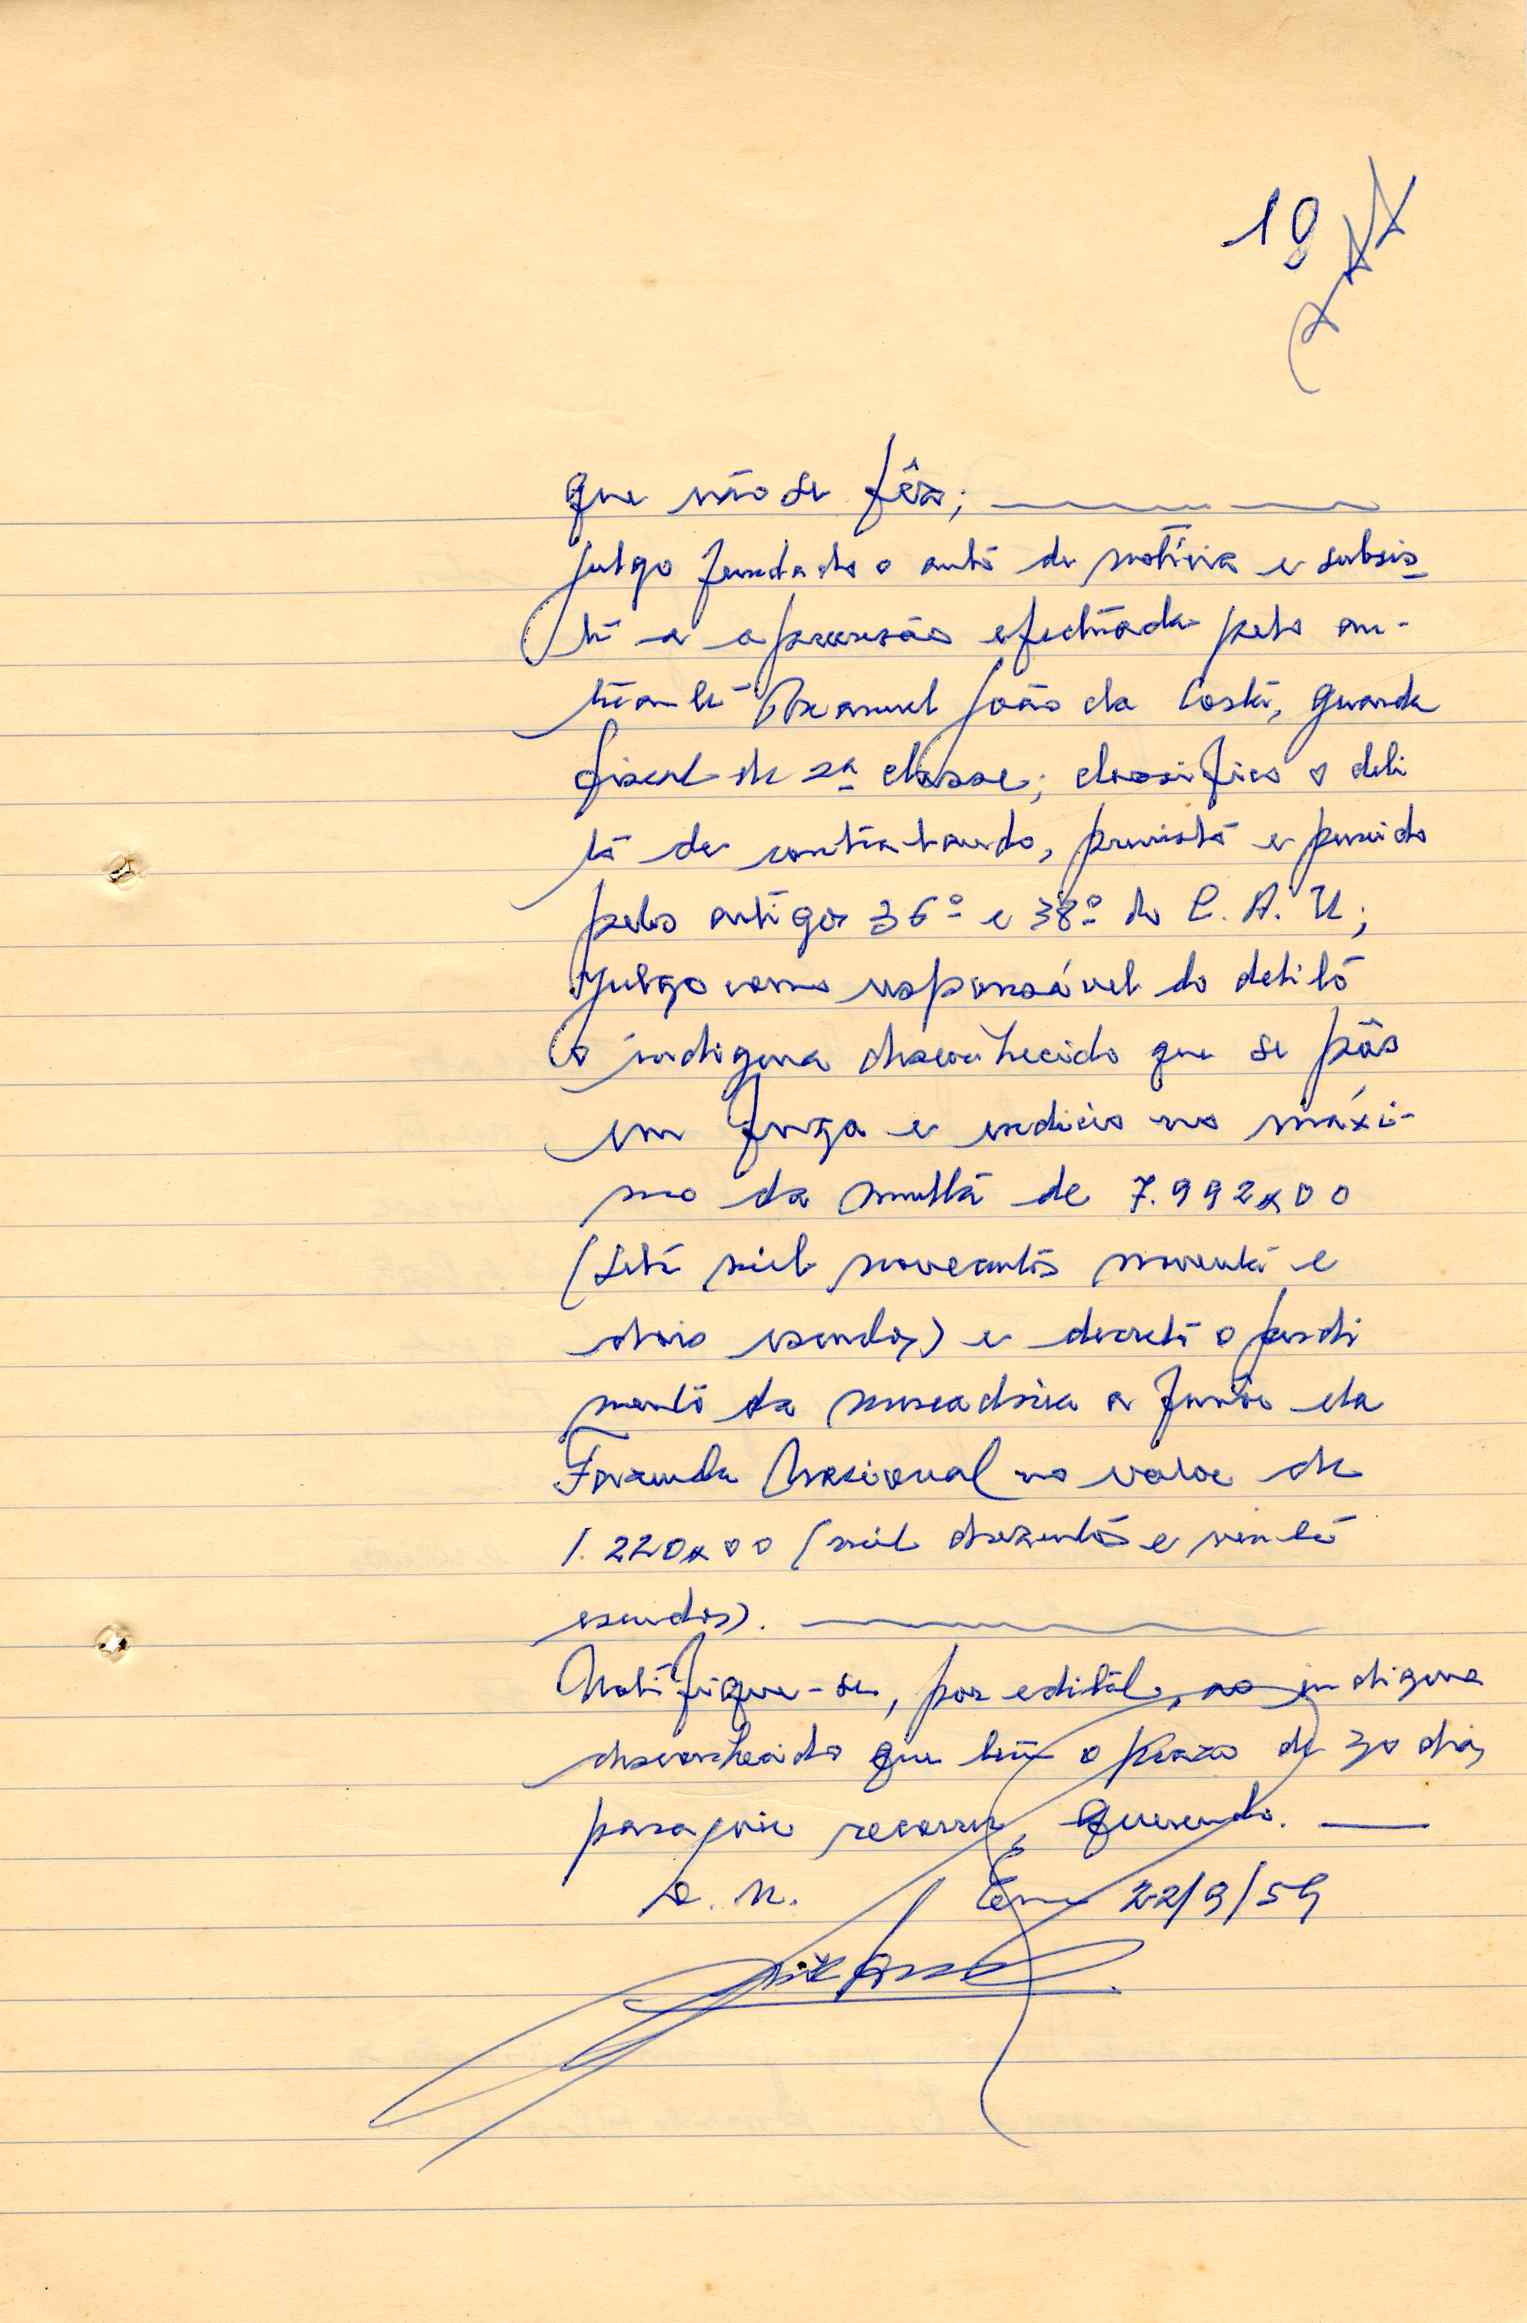 10
que não se fêz;
julgo fundado o auto de notícia e subsis-
te a apreensão efectuada pelo au-
tuante Manuel João da Costa, guarda
fiscal de 2ª classe; classifico o deli
to de contrabando, previsto e punido
pelos artigos 36º e 38º do C. A. U;
julgo como responsável do delito
o indígena desconhecido que se pôs
em fuga e indicio no máxi-
mo da multa de 7.992$00
(sete mil novecentos noventa e
dois escudos) e decreto o perdi
mento da mercadoria a favor da
Fazenda Nacional no valor de
1.220$00 (mil duzentos e vinte
escudos).
Notifique-se, por edital, ao indígena
desconhecido que tem o prazo de 30 dias
para recorrer, querendo.
Em 22/9/59